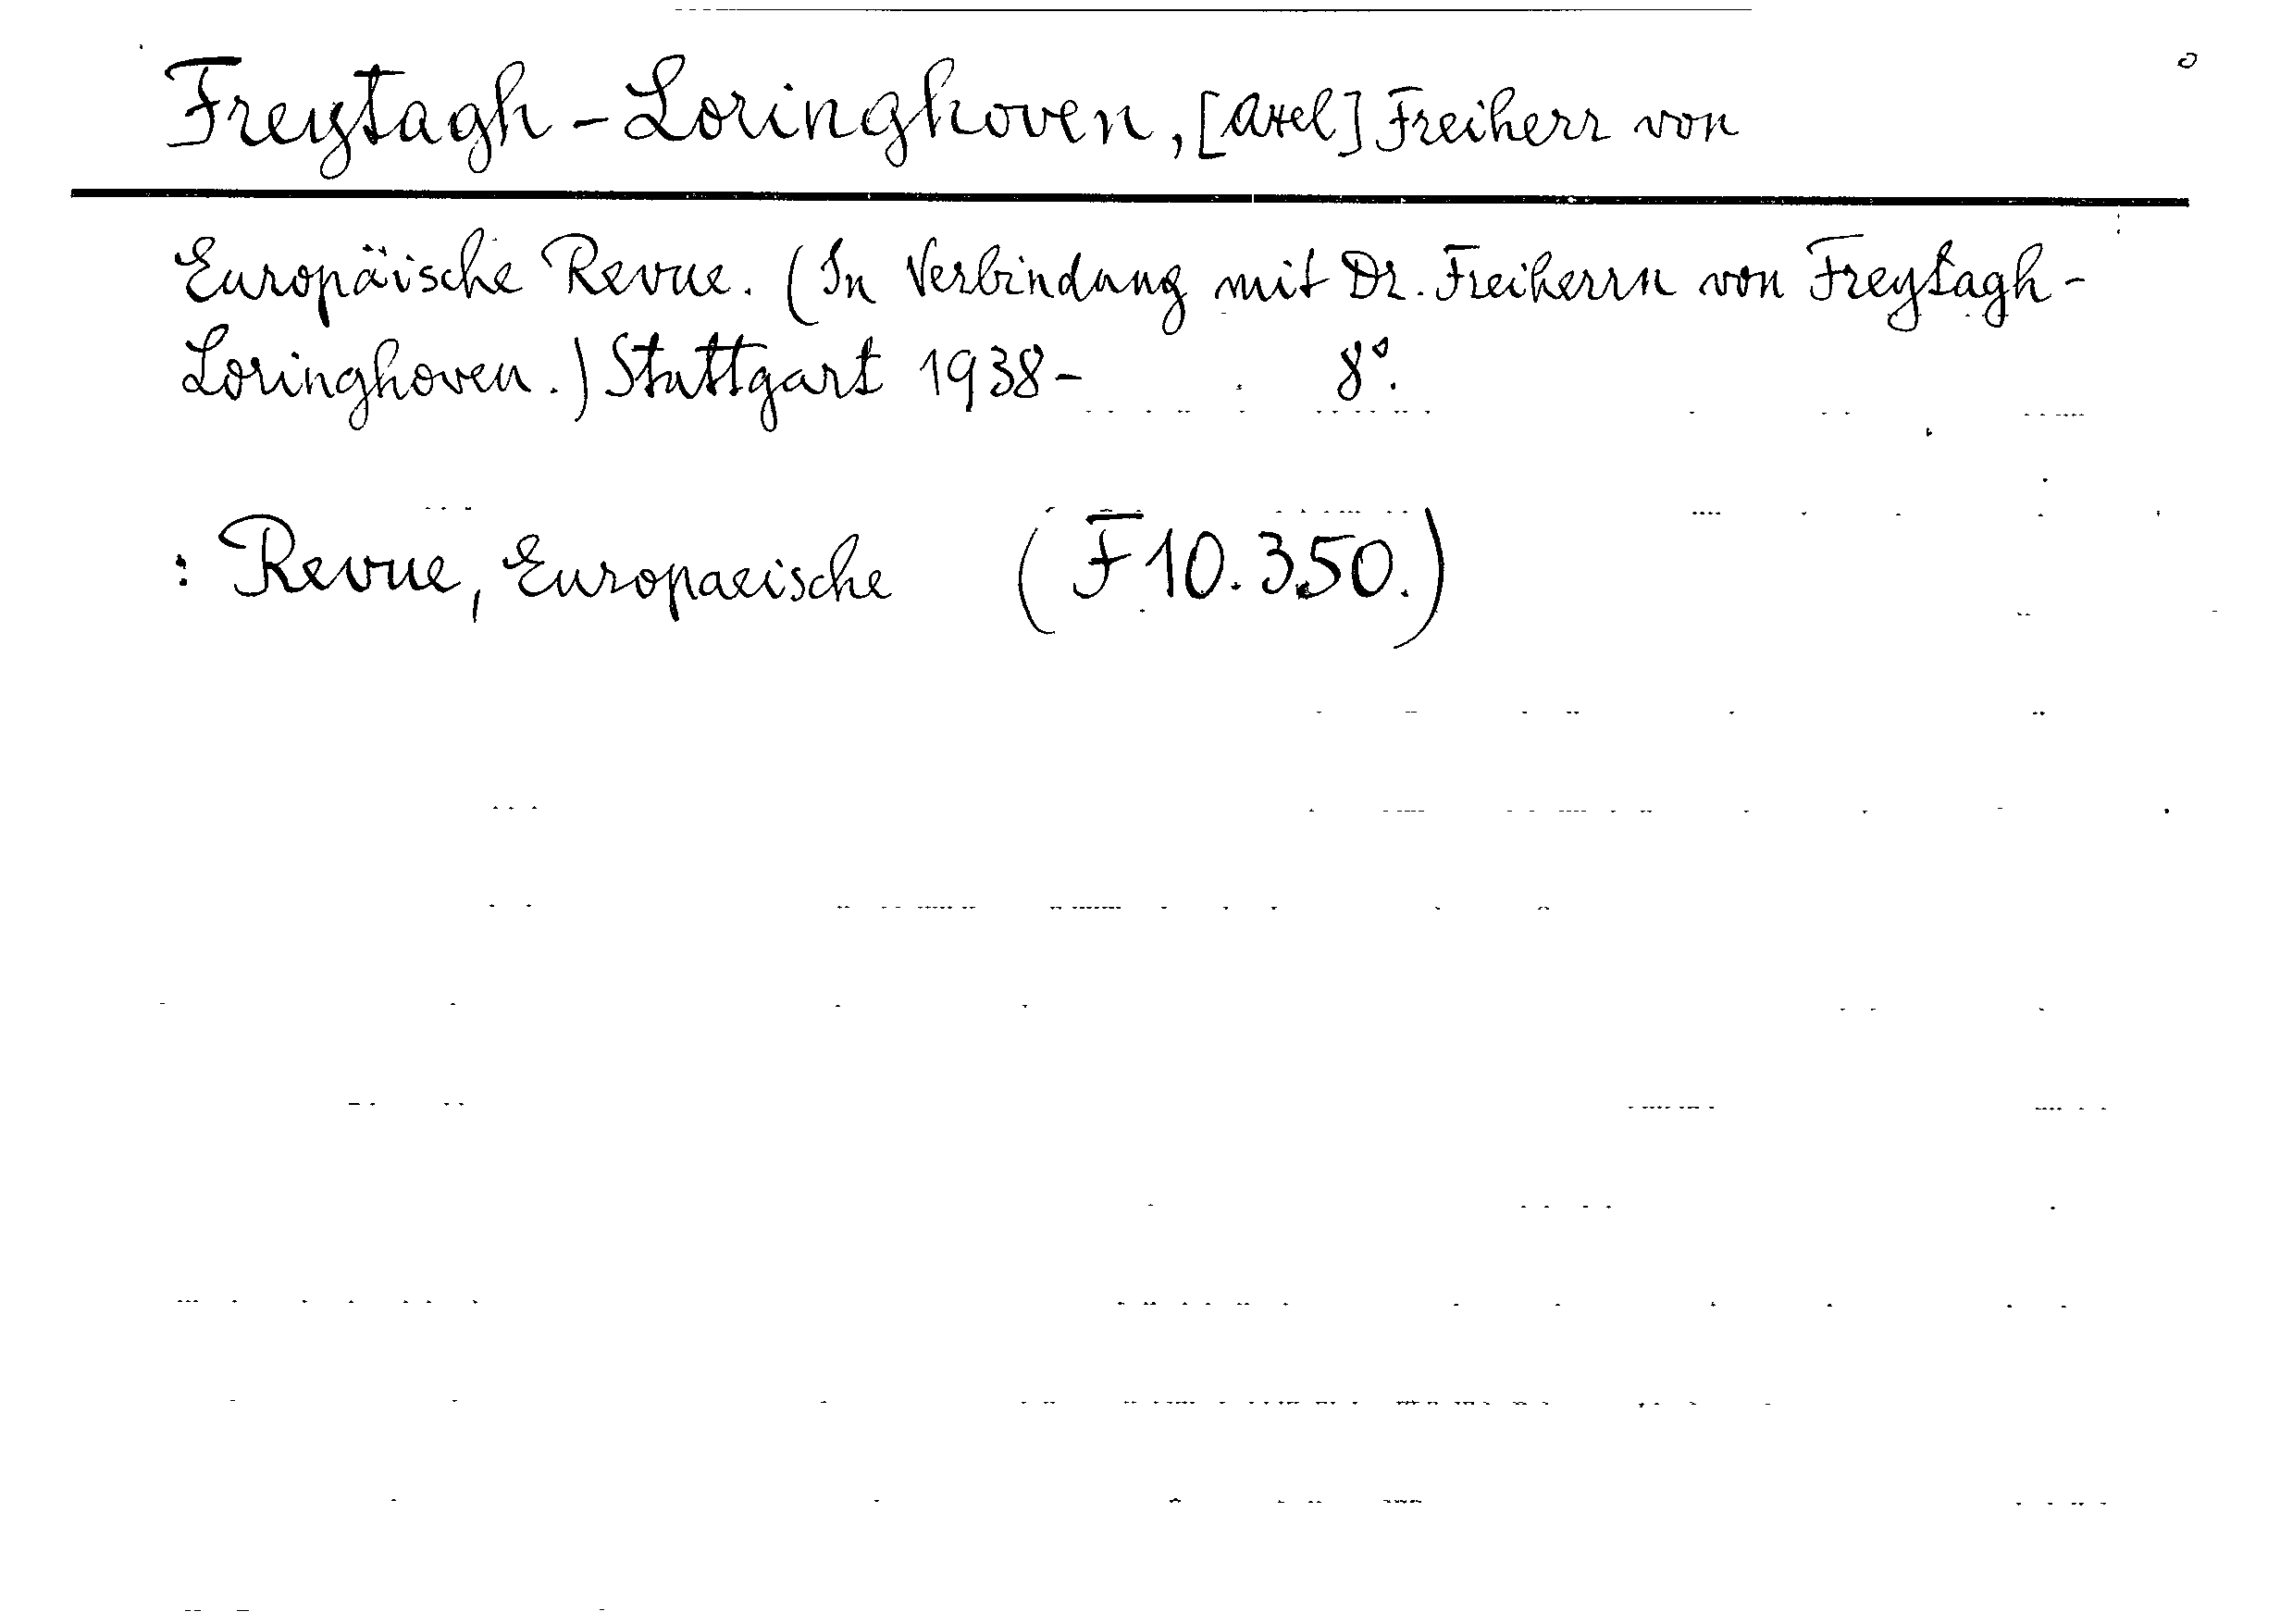 Freytagh-Loringhoven, [Axel] Freiherr von
Europäische Revue. (In Verbindung mit Dr. Freiherrn von Freytagh-
Loringhoven.) Stuttgart 1938- 8°.
: Revue, Europaeische (F 10.350.)